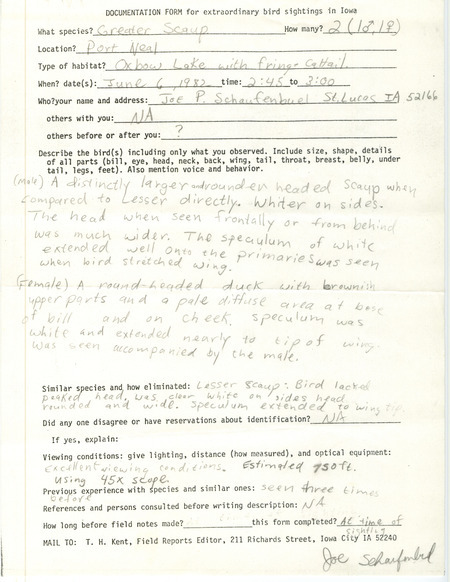 DOCUMENTATION FORM for extraordinary bird sightings in Iowa
What species? Greater Scaup How many? 2 (1♂,1♀)
Location? Port Neal
Type of habitat? Oxbow Lake with fringe cattail
When? date(s): June 6, 1982 time: 2:45 to 3:00
Who? your name and address: Joe P. Schaufenbuel St. Lucas IA 52166
others with you: NA
others before or after you: ?
Describe the bird(s) including only what you observed. Include size, shape, details
of all parts (bill, eye, head, neck, back, wing, tail, throat, breast, belly, under
tail, legs, feet). Also mention voice and behavior.
(Male) A distinctly larger and rounder headed Scaup when
compared to Lesser directly. Whiter on sides.
The head when seen frontally or from behind
was much wider. The speculum of white
extended well onto the primaries was seen
when bird stretched wing.
(Female) A round-headed duck with brownish
upperparts and a pale diffuse area at base
of bill and on cheek. Speculum was
white and extended nearly to tip of wing.
Was seen accompanied by the male.
Similar species and how eliminated: Lesser Scaup: Bird lacked
peaked head, was clear white on sides head
rounded and wide. Speculum extended to wing tip.
Did any one disagree or have reservations about identification? NA
If yes, explain:
Viewing conditions: give lighting, distance (how measured), and optical equipment:
Excellent viewing conditions. Estimated 750ft.
Using 45x scope.
Previous experience with species and similar ones: seen three times
before
References and persons consulted before writing description: NA
How long before field notes made? this form completed? At time of
sighting
MAIL TO: T. H. Kent, Field Reports Editor, 211 Richards Street, Iowa City IA 52240
Joe Schaufenbuel